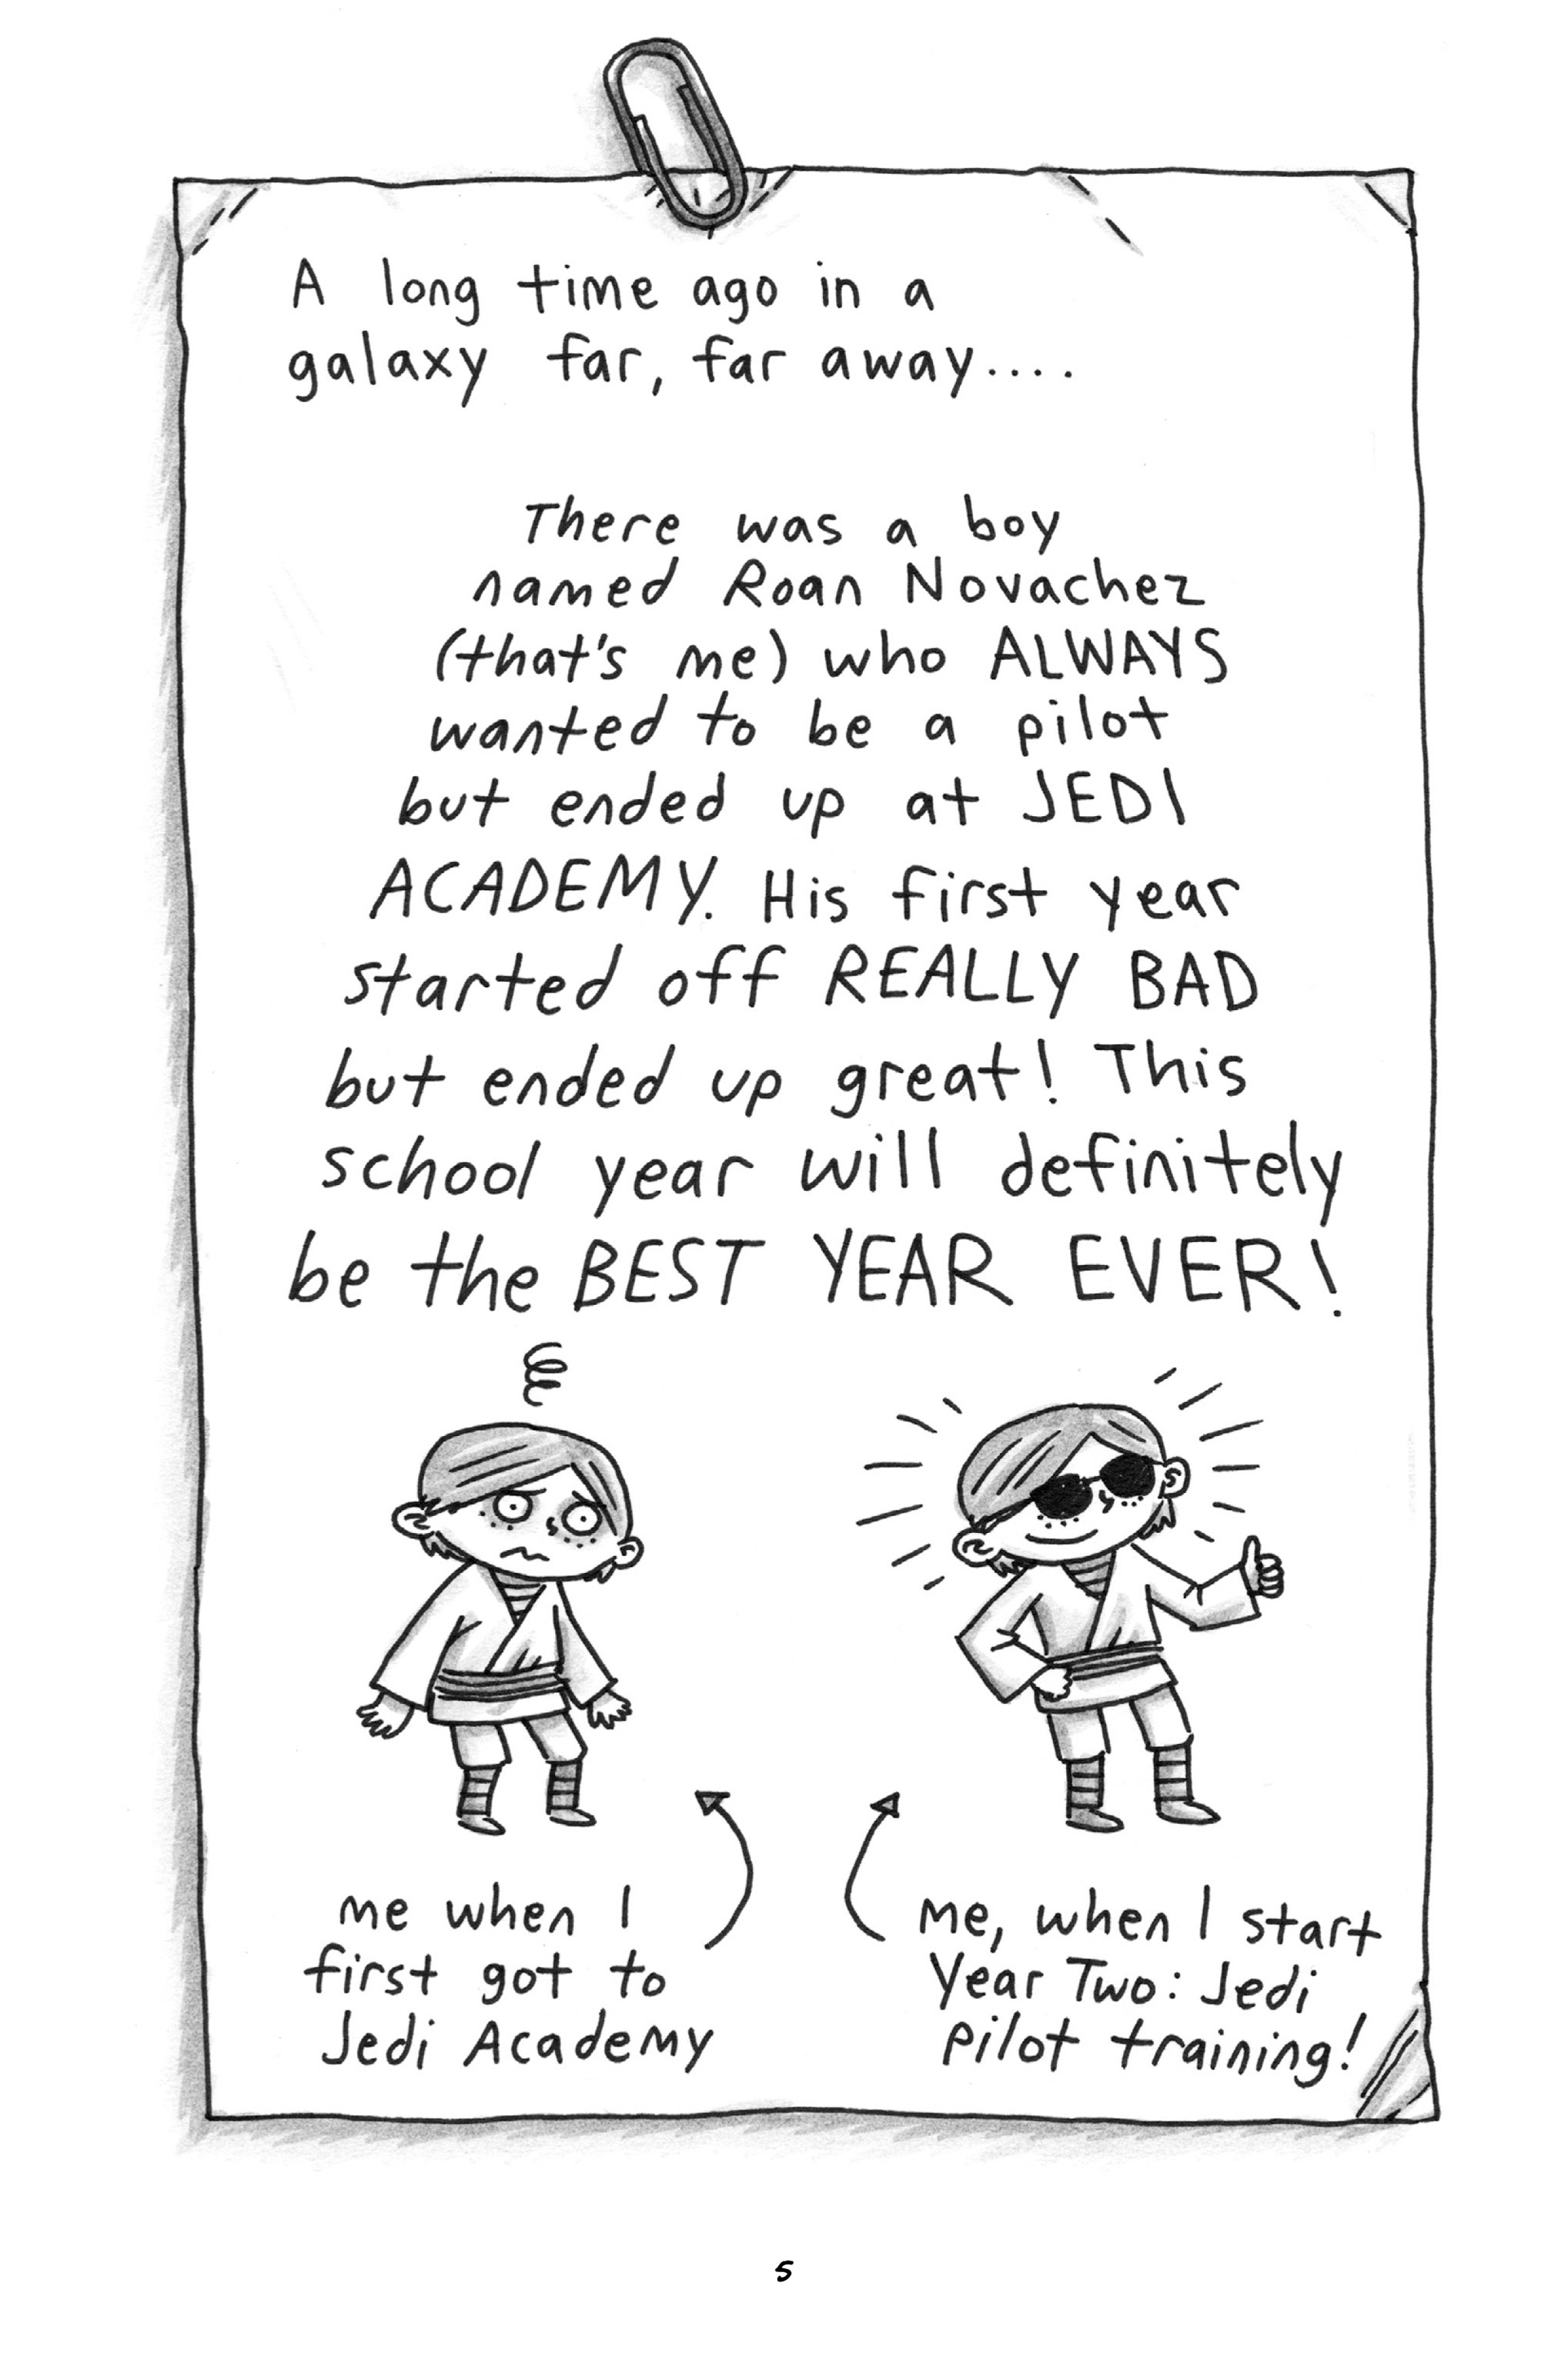 A long time ago in a
galaxy far, far away....
There was a boy
named Roan Novachez
(that's me) who ALWAYS
wanted to be a pilot
but ended up at JEDI
ACADEMY. His first year
started off REALLY BAD
but ended up great! This
school year will definitely
be the BEST YEAR EVER!
me when I
first got to
Jedi Academy
me, when I start
Year Two: Jedi
pilot training!
5